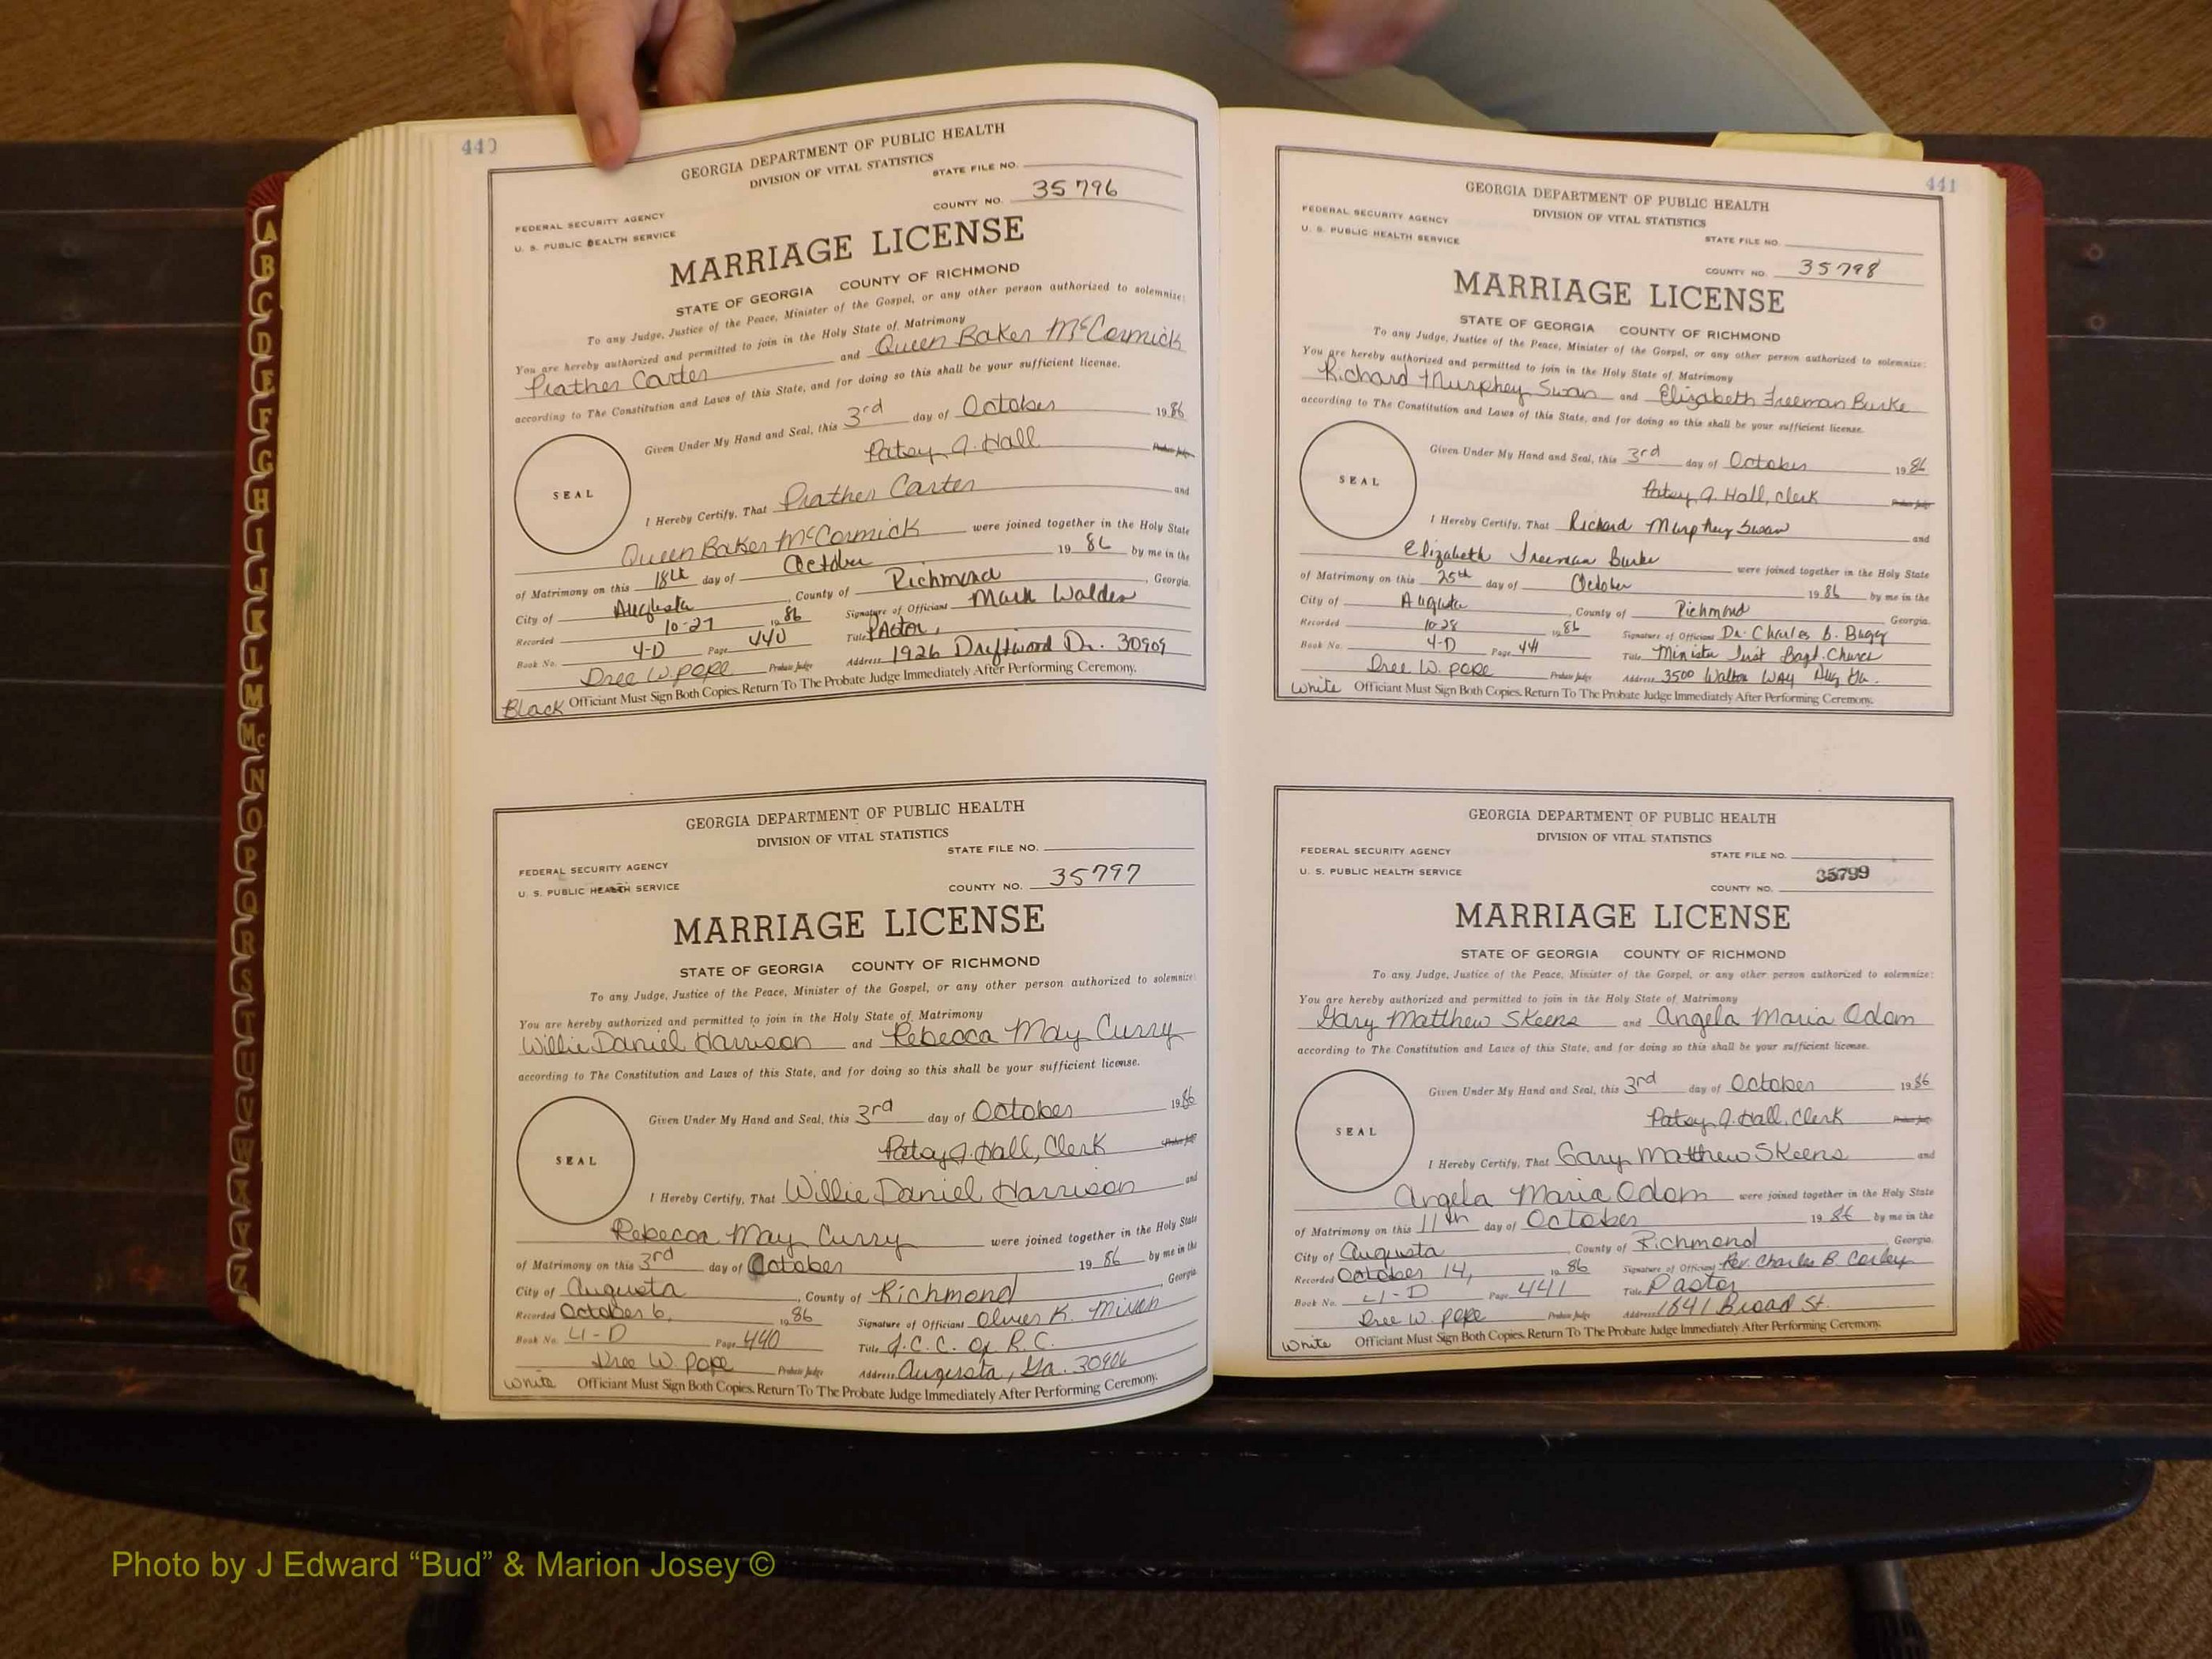 440
GEORGIA DEPARTMENT OF PUBLIC HEALTH
DIVISION OF VITAL STATISTICS
STATE FILE NO.
FEDERAL SECURITY AGENCY
U. S. PUBLIC HEALTH SERVICE
COUNTY NO. 35796
MARRIAGE LICENSE
STATE OF GEORGIA COUNTY OF RICHMOND
To any Judge, Justice of the Peace, Minister of the Gospel, or any other person authorized to solemnize:
You are hereby authorized and permitted to join in the Holy State of Matrimony
Prather Carter and Queen Baker McCormick
according to The Constitution and Laws of this State, and for doing so this shall be your sufficient license.
Given Under My Hand and Seal, this 3rd day of October 1986
Patsy J. Hall Probate Judge
SEAL
I Hereby Certify, That Prather Carter and
Queen Baker McCormick were joined together in the Holy State
of Matrimony on this 18th day of October 19 86 by me in the
City of Augusta, County of Richmond, Georgia.
Recorded 10-27 1986 Signature of Officiant Mark Walden
Book No. 4-D Page 440 Title Pastor,
Dree W. Pope Probate Judge Address 1926 Driftwood Dr. 30909
Black Officiant Must Sign Both Copies. Return To The Probate Judge Immediately After Performing Ceremony.
GEORGIA DEPARTMENT OF PUBLIC HEALTH
DIVISION OF VITAL STATISTICS
STATE FILE NO.
FEDERAL SECURITY AGENCY
U. S. PUBLIC HEALTH SERVICE
COUNTY NO. 35797
MARRIAGE LICENSE
STATE OF GEORGIA COUNTY OF RICHMOND
To any Judge, Justice of the Peace, Minister of the Gospel, or any other person authorized to solemnize:
You are hereby authorized and permitted to join in the Holy State of Matrimony
Willie Daniel Harrison and Rebecca May Curry
according to The Constitution and Laws of this State, and for doing so this shall be your sufficient license.
Given Under My Hand and Seal, this 3rd day of October 1986
Patsy J. Hall, Clerk Probate Judge
SEAL
I Hereby Certify, That Willie Daniel Harrison and
Rebecca May Curry were joined together in the Holy State
of Matrimony on this 3rd day of October 19 86 by me in the
City of Augusta, County of Richmond, Georgia.
Recorded October 6, 1986 Signature of Officiant Oliver K. Mixon
Book No. 4-D Page 440 Title J.C.C. Of R.C.
Dree W. Pope Probate Judge Address Augusta, Ga. 30906
White Officiant Must Sign Both Copies. Return To The Probate Judge Immediately After Performing Ceremony.
441
GEORGIA DEPARTMENT OF PUBLIC HEALTH
DIVISION OF VITAL STATISTICS
FEDERAL SECURITY AGENCY
U. S. PUBLIC HEALTH SERVICE
STATE FILE NO.
COUNTY NO. 35798
MARRIAGE LICENSE
STATE OF GEORGIA COUNTY OF RICHMOND
To any Judge, Justice of the Peace, Minister of the Gospel, or any other person authorized to solemnize:
You are hereby authorized and permitted to join in the Holy State of Matrimony
Richard Murphey Swan and Elizabeth Freeman Burke
according to The Constitution and Laws of this State, and for doing so this shall be your sufficient license.
Given Under My Hand and Seal, this 3rd day of October 1986
Patsy J. Hall, Clerk Probate Judge
SEAL
I Hereby Certify, That Richard Murphey Swan and
Elizabeth Freeman Burke were joined together in the Holy State
of Matrimony on this 25th day of October 1986 by me in the
City of Augusta, County of Richmond Georgia.
Recorded 10-28 1986 Signature of Officiant Dr. Charles B. Bugg
Book No. 4-D Page 441 Title Minister First Bapt. Church
Dree W. Pope Probate Judge Address 3500 Walton Way Aug Ga.
White Officiant Must Sign Both Copies. Return To The Probate Judge Immediately After Performing Ceremony.
GEORGIA DEPARTMENT OF PUBLIC HEALTH
DIVISION OF VITAL STATISTICS
FEDERAL SECURITY AGENCY
STATE FILE NO.
U. S. PUBLIC HEALTH SERVICE
COUNTY NO. 35799
MARRIAGE LICENSE
STATE OF GEORGIA COUNTY OF RICHMOND
To any Judge, Justice of the Peace, Minister of the Gospel, or any other person authorized to solemnize:
You are hereby authorized and permitted to join in the Holy State of Matrimony
Gary Matthew Skeens and Angela Maria Odom
according to The Constitution and Laws of this State, and for doing so this shall be your sufficient license.
Given Under My Hand and Seal, this 3rd day of October 1986
Patsy J. Hall, Clerk Probate Judge
SEAL
I Hereby Certify, That Gary Matthew Skeens and
Angela Maria Odom were joined together in the Holy State
of Matrimony on this 11th day of October 19 86 by me in the
City of Augusta, County of Richmond, Georgia.
Recorded October 14, 1986 Signature of Officiant Rev. Charles B. Corley
Book No. 4-D Page 441 Title Pastor
Dree W. Pope Probate Judge Address 1641 Broad St.
White Officiant Must Sign Both Copies. Return To The Probate Judge Immediately After Performing Ceremony.
A
B
C
D
E
F
G
H
I
J
K
L
M
Mc
N
O
P
Q
R
S
T
U
V
W
X
Y
Z
Photo by J Edward “Bud” & Marion Josey ©